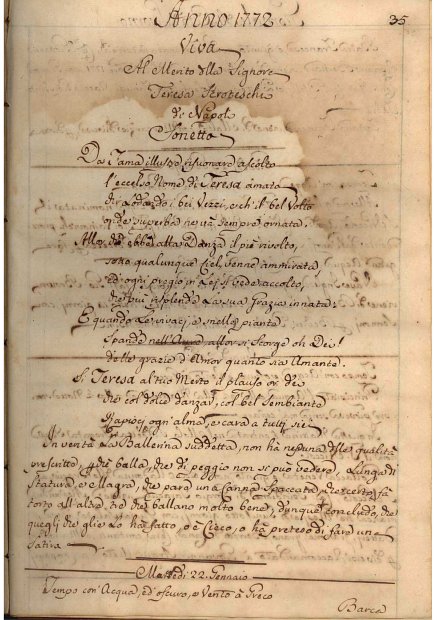 Anno 1772
35
Viva
Al Merito della Signora
Teresa
di Napoli
Sonetto
Da Fama illustre risuonare ascolto
l'eccelso Nome di Teresa amata
di lodando i bei Vezzi, e ch'il bel Volto
onde superba sempre ornata.
Allor che ebbe alla Danza il piè rivolto,
sotto qualunque Ciel, venne ammirata,
ed ogni pregio in Lei si vede accolto,
che più risplende la sua Grazia innata.
E quando Le vivaci, e snelle piante
Spande nell'Aure allor si scorge oh Dei!
delle grazie d'Amor quanto sia Amante.
Sì Teresa al tuo Merto il plauso or dei
che col dolce danzar, col bel Sembiante
Rapisci ogni alma, e cara a tutti sei
In verità la Ballerina suddetta, non ha nessuna delle qualità
prescritte, che balla, che di peggio non si può vedere, Lunga di
Statura, e Magra, che pare una Canna Spaccata, che certo fà
torto all'altre che ballano molto bene, dunque concludo, che
quegli che glie lo ha fatto, o è Cieco, o ha preteso di fare una
Satira
Martedì 22. Gennaio
Tempo con Acqua, ed oscuro, e Vento à Greco
Barca